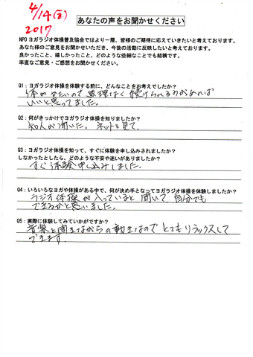 4/14(金)
2017
あなたの声をお聞かせください
NPOヨガラジオ体操普及協会ではより一層、皆様のご期待に応えていきたいと考えております。
あなた様のご意見をお聞かせいただき、今後の活動に反映したいと考えております。
良かったこと、嬉しかったこと、どのような些細なことでも結構です。
率直なご意見・ご感想をお聞かせください。
Q1:ヨガラジオ体操を体験する前に、どんなことをお考えでしたか?
体がかたいので無理なく続けられるものがあれば
いいと思ってました。
Q2:何がきっかけでヨガラジオ体操を知りましたか?
知人から聞いた。ネットを見て
Q3:ヨガラジオ体操を知って、すぐに体験を申し込みされましたか?
しなかったとしたら、どのような不安や迷いがありましたか?
すぐ体験申し込みました。
Q4:いろいろなヨガや体操がある中で、何が決め手となってヨガラジオ体操を体験しましたか?
ラジオ体操が入っていると聞いて自分でも
できるかと思いました。
Q5:実際に体験してみていかがですか?
音楽を聞きながらの動きなのでとてもリラックスして
できます